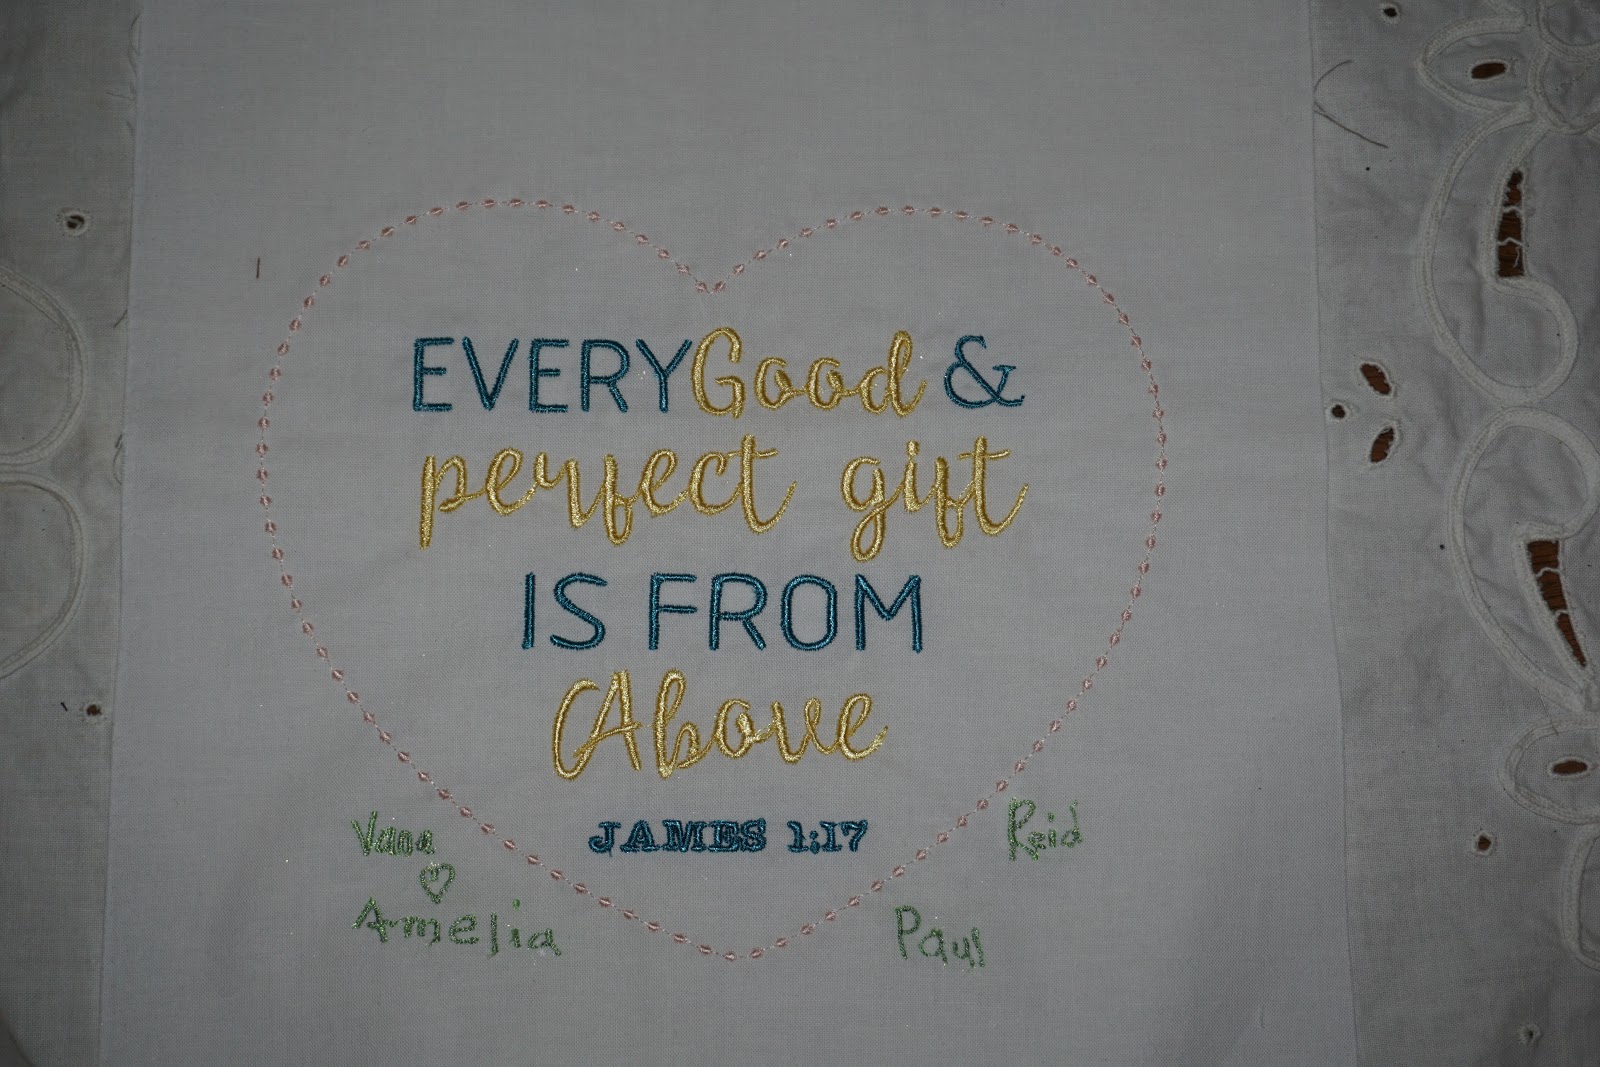 EVERY Good &
perfect gift
IS FROM
Above
JAMES 1:17
Vana
Amelia
Reid
Paul